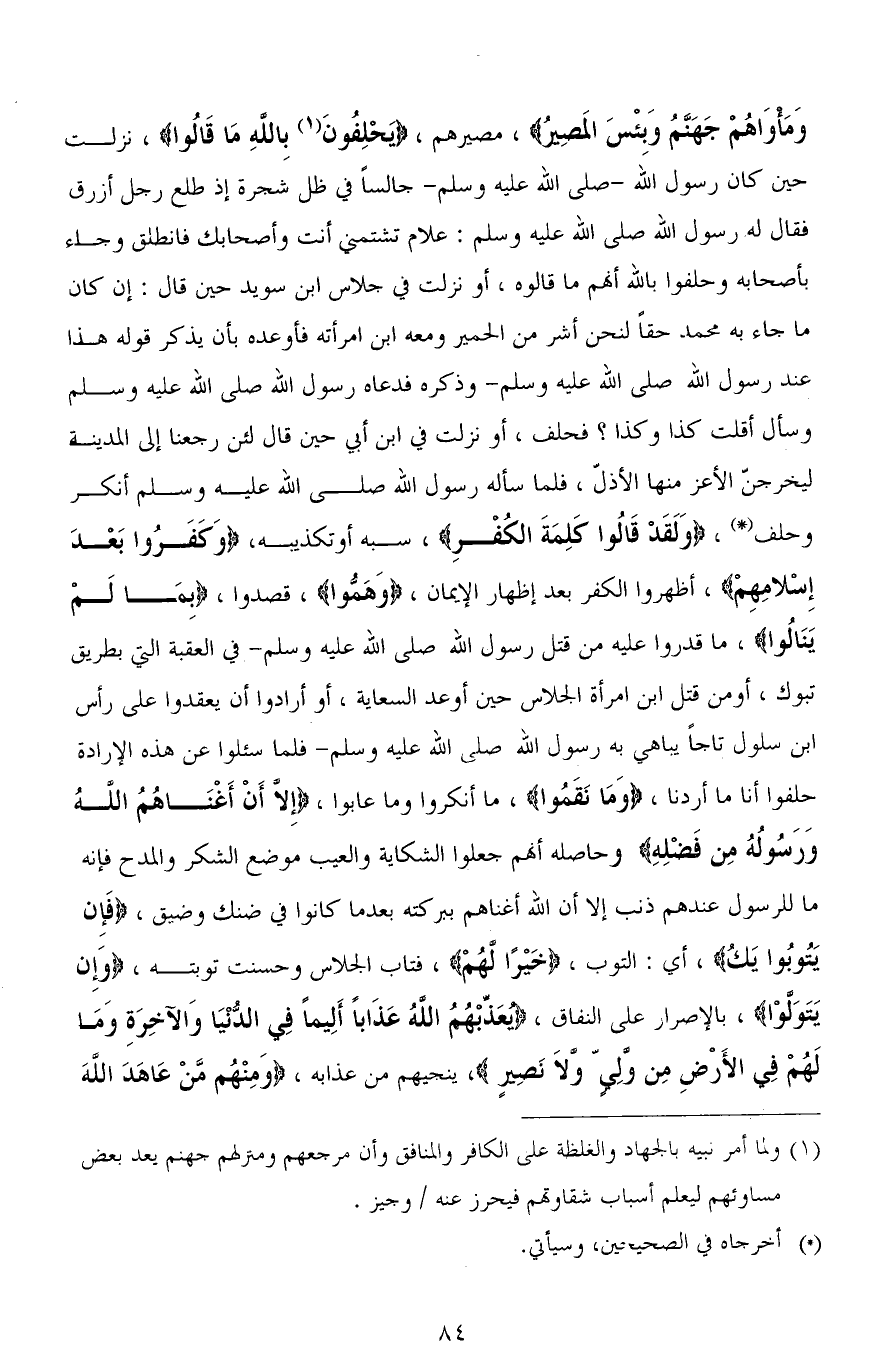 وَمَأْوَاهُمْ جَهَنَّمُ وَبِئْسَ المَصِيرُ﴾ ، مصيرهم ، ﴿يَحْلِفُونَ(١) بِاللَّهِ مَا قَالُوا﴾ ، نزلــت
حين كان رسول الله –صلى الله عليه وسلم– جالساً في ظل شجرة إذ طلع رجل أزرق
فقال له رسول الله صلى الله عليه وسلم : علام تشتمني أنت وأصحابك فانطلق وجــاء
بأصحابه وحلفوا بالله أنهم ما قالوه ، أو نزلت في جلاس ابن سويد حين قال : إن كان
ما جاء به محمد حقاً لنحن أشر من الحمير ومعه ابن امرأته فأوعده بأن يذكر قوله هــذا
عند رسول الله صلى الله عليه وسلم– وذكره فدعاه رسول الله صلى الله عليه وســلم
وسأل أقلت كذا وكذا ؟ فحلف ، أو نزلت في ابن أبي حين قال لئن رجعنا إلى المدينــة
ليخرجنّ الأعز منها الأذلّ ، فلما سأله رسول الله صلــى الله عليــه وســلم أنكــر
وحلف(*) ، ﴿وَلَقَدْ قَالُوا كَلِمَةَ الكُفْــرِ﴾ ، ســبه أوتكذيبــه، ﴿وَكَفَــرُوا بَعْــدَ
إِسْلامِهِمْ﴾ ، أظهروا الكفر بعد إظهار الإيمان ، ﴿وَهَمُّوا﴾ ، قصدوا ، ﴿بِمَــا لَــمْ
يَنَالُوا﴾ ، ما قدروا عليه من قتل رسول الله صلى الله عليه وسلم– في العقبة التي بطريق
تبوك ، أومن قتل ابن امرأة الجلاس حين أوعد السعاية ، أو أرادوا أن يعقدوا على رأس
ابن سلول تاجاً يباهي به رسول الله صلى الله عليه وسلم– فلما سئلوا عن هذه الإرادة
حلفوا أنا ما أردنا ، ﴿وَمَا نَقَمُوا﴾ ، ما أنكروا وما عابوا ، ﴿إِلاَّ أَنْ أَغْنَــاهُمُ اللَّــهُ
وَرَسُولُهُ مِن فَضْلِهِ﴾ وحاصله أنهم جعلوا الشكاية والعيب موضع الشكر والمدح فإنه
ما للرسول عندهم ذنب إلا أن الله أغناهم ببركته بعدما كانوا في ضنك وضيق ، ﴿فَإِن
يَتُوبُوا يَكُ﴾ ، أي : التوب ، ﴿خَيْرًا لَّهُمْ﴾ ، فتاب الجلاس وحسنت توبتــه ، ﴿وَإِن
يَتَوَلَّوْا﴾ ، بالإصرار على النفاق ، ﴿يُعَذِّبْهُمُ اللَّهُ عَذَاباً أَلِيماً فِي الدُّنْيَا وَالآخِرَةِ وَمَــا
لَهُمْ فِي الأَرْضِ مِن وَلِيٍّ وَّلاَ نَصِيرٍ ﴾، ينجيهم من عذابه ، ﴿وَمِنْهُم مَّنْ عَاهَدَ اللَّهَ
(١) ولما أمر نبيه بالجهاد والغلظة على الكافر والمنافق وأن مرجعهم ومنزلهم جهنم يعد بعض
مساوئهم ليعلم أسباب شقاوتهم فيحرز عنه / وجيز .
(*) أخرجاه في الصحيحين، وسيأتي.
٨٤